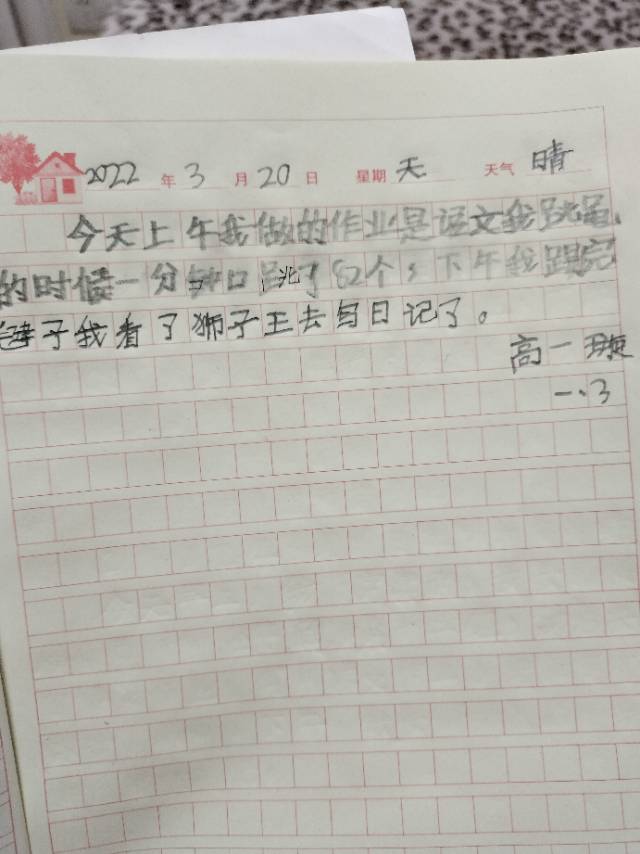 2022年3月20日 星期天 天气晴
今天上午我做的作业是语文我跳绳、
的时候一分 跳了82个，下午我跳完
子我看了狮子王去写日记了。
高一璇
一、3